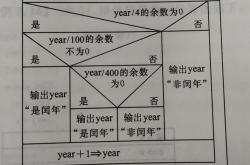 year/4的余数为0
是
否
year/100的余数
不为0
是
否
year/400的余数
为0
是
否
输出year
“是闰年”
输出year
“是闰年”
输出year
“非闰年”
输出year
“非闰年”
year+1⇒year